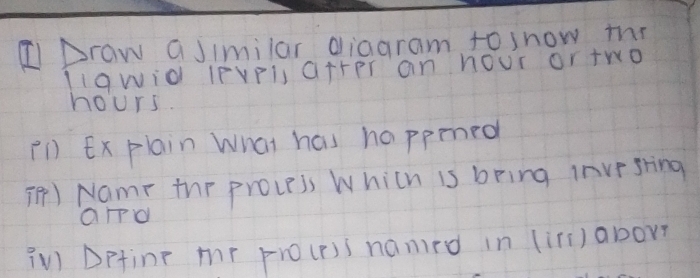 I) Draw a similar diagram to show the
liquid levels after an hour or two
hours.
ii) Explain What has happened
iii) Name the process Which is being investing
ated
iv) Define the process named in (iii) above